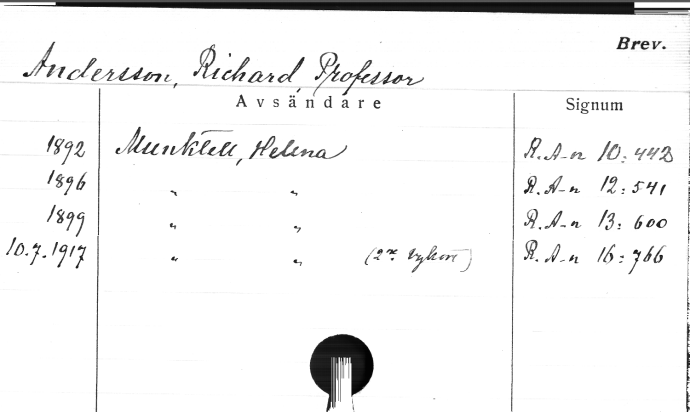 Brev.
Andersson, Richard, Professor
Avsändare Signum
1892 Munktell, Helena R. A-n 10: 442
1896 " " R. A-n 12: 541
1899 " " R. A-n 13: 600
10.7.1917 " " (2 st. vykort) R. A-n 16: 766